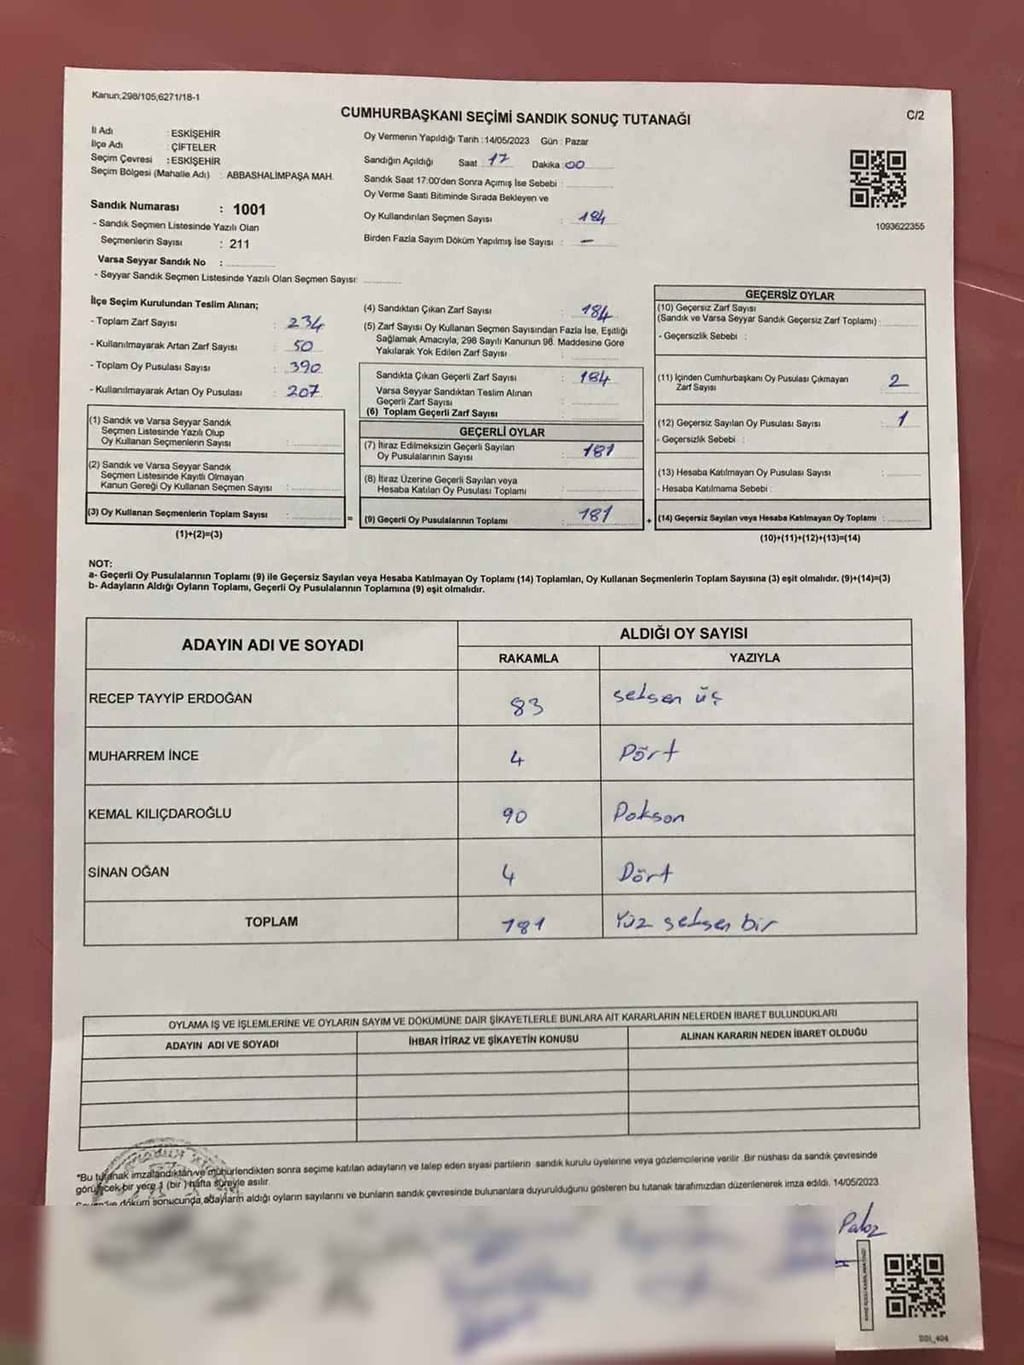 Kanun;298/105,6271/18-1
CUMHURBAŞKANI SEÇİMİ SANDIK SONUÇ TUTANAĞI
C/2
İl Adı : ESKİŞEHİR
İlçe Adı : ÇİFTELER
Seçim Çevresi : ESKİŞEHİR
Seçim Bölgesi (Mahalle Adı) : ABBASHALİMPAŞA MAH.
Sandık Numarası : 1001
- Sandık Seçmen Listesinde Yazılı Olan
Seçmenlerin Sayısı : 211
Varsa Seyyar Sandık No :
- Seyyar Sandık Seçmen Listesinde Yazılı Olan Seçmen Sayısı:
Oy Vermenin Yapıldığı Tarih : 14/05/2023 Gün : Pazar
Sandığın Açıldığı Saat 17 Dakika 00
Sandık Saat 17:00'den Sonra Açımış İse Sebebi :
Oy Verme Saati Bitiminde Sırada Bekleyen ve
Oy Kullandırılan Seçmen Sayısı : 184
Birden Fazla Sayım Döküm Yapılmış İse Sayısı : –
1093622355
İlçe Seçim Kurulundan Teslim Alınan;
- Toplam Zarf Sayısı : 234
- Kullanılmayarak Artan Zarf Sayısı : 50
- Toplam Oy Pusulası Sayısı : 390
- Kullanılmayarak Artan Oy Pusulası : 207
(1) Sandık ve Varsa Seyyar Sandık
Seçmen Listesinde Yazılı Olup
Oy Kullanan Seçmenlerin Sayısı :
(2) Sandık ve Varsa Seyyar Sandık
Seçmen Listesinde Kayıtlı Olmayan
Kanun Gereği Oy Kullanan Seçmen Sayısı :
(3) Oy Kullanan Seçmenlerin Toplam Sayısı :
(1)+(2)=(3)
(4) Sandıktan Çıkan Zarf Sayısı : 184
(5) Zarf Sayısı Oy Kullanan Seçmen Sayısından Fazla İse, Eşitliği
Sağlamak Amacıyla, 298 Sayılı Kanunun 98. Maddesine Göre
Yakılarak Yok Edilen Zarf Sayısı :
Sandıkta Çıkan Geçerli Zarf Sayısı : 184
Varsa Seyyar Sandıktan Teslim Alınan
Geçerli Zarf Sayısı :
(6) Toplam Geçerli Zarf Sayısı :
GEÇERLİ OYLAR
(7) İtiraz Edilmeksizin Geçerli Sayılan
Oy Pusulalarının Sayısı : 181
(8) İtiraz Üzerine Geçerli Sayılan veya
Hesaba Katılan Oy Pusulası Toplamı :
= (9) Geçerli Oy Pusulalarının Toplamı : 181 +
GEÇERSİZ OYLAR
(10) Geçersiz Zarf Sayısı
(Sandık ve Varsa Seyyar Sandık Geçersiz Zarf Toplamı) :
- Geçersizlik Sebebi :
(11) İçinden Cumhurbaşkanı Oy Pusulası Çıkmayan
Zarf Sayısı : 2
(12) Geçersiz Sayılan Oy Pusulası Sayısı : 1
- Geçersizlik Sebebi :
(13) Hesaba Katılmayan Oy Pusulası Sayısı :
- Hesaba Katılmama Sebebi :
(14) Geçersiz Sayılan veya Hesaba Katılmayan Oy Toplamı :
(10)+(11)+(12)+(13)=(14)
NOT:
a- Geçerli Oy Pusulalarının Toplamı (9) ile Geçersiz Sayılan veya Hesaba Katılmayan Oy Toplamı (14) Toplamları, Oy Kullanan Seçmenlerin Toplam Sayısına (3) eşit olmalıdır. (9)+(14)=(3)
b- Adayların Aldığı Oyların Toplamı, Geçerli Oy Pusulalarının Toplamına (9) eşit olmalıdır.
ADAYIN ADI VE SOYADI ALDIĞI OY SAYISI
RAKAMLA YAZIYLA
RECEP TAYYİP ERDOĞAN 83 seksen üç
MUHARREM İNCE 4 Dört
KEMAL KILIÇDAROĞLU 90 Doksan
SİNAN OĞAN 4 Dört
TOPLAM 181 Yüz seksen bir
OYLAMA İŞ VE İŞLEMLERİNE VE OYLARIN SAYIM VE DÖKÜMÜNE DAİR ŞİKAYETLERLE BUNLARA AİT KARARLARIN NELERDEN İBARET BULUNDUKLARI
ADAYIN ADI VE SOYADI İHBAR İTİRAZ VE ŞİKAYETİN KONUSU ALINAN KARARIN NEDEN İBARET OLDUĞU
*Bu tutanak imzalandıktan ve mühürlendikten sonra seçime katılan adayların ve talep eden siyasi partilerin sandık kurulu üyelerine veya gözlemcilerine verilir .Bir nüshası da sandık çevresinde
görülecek bir yere 1 (bir ) hafta süreyle asılır
döküm sonucunda adayların aldığı oyların sayılarını ve bunların sandık çevresinde bulunanlara duyurulduğunu gösteren bu tutanak tarafımızdan düzenlenerek imza edildi. 14/05/2023